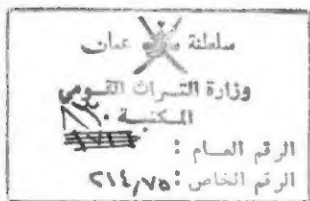 سلطنة عمان
وزارة التراث القومى
المكتبة
الرقم العام :
الرقم الخاص : ٢١٤,٧٥